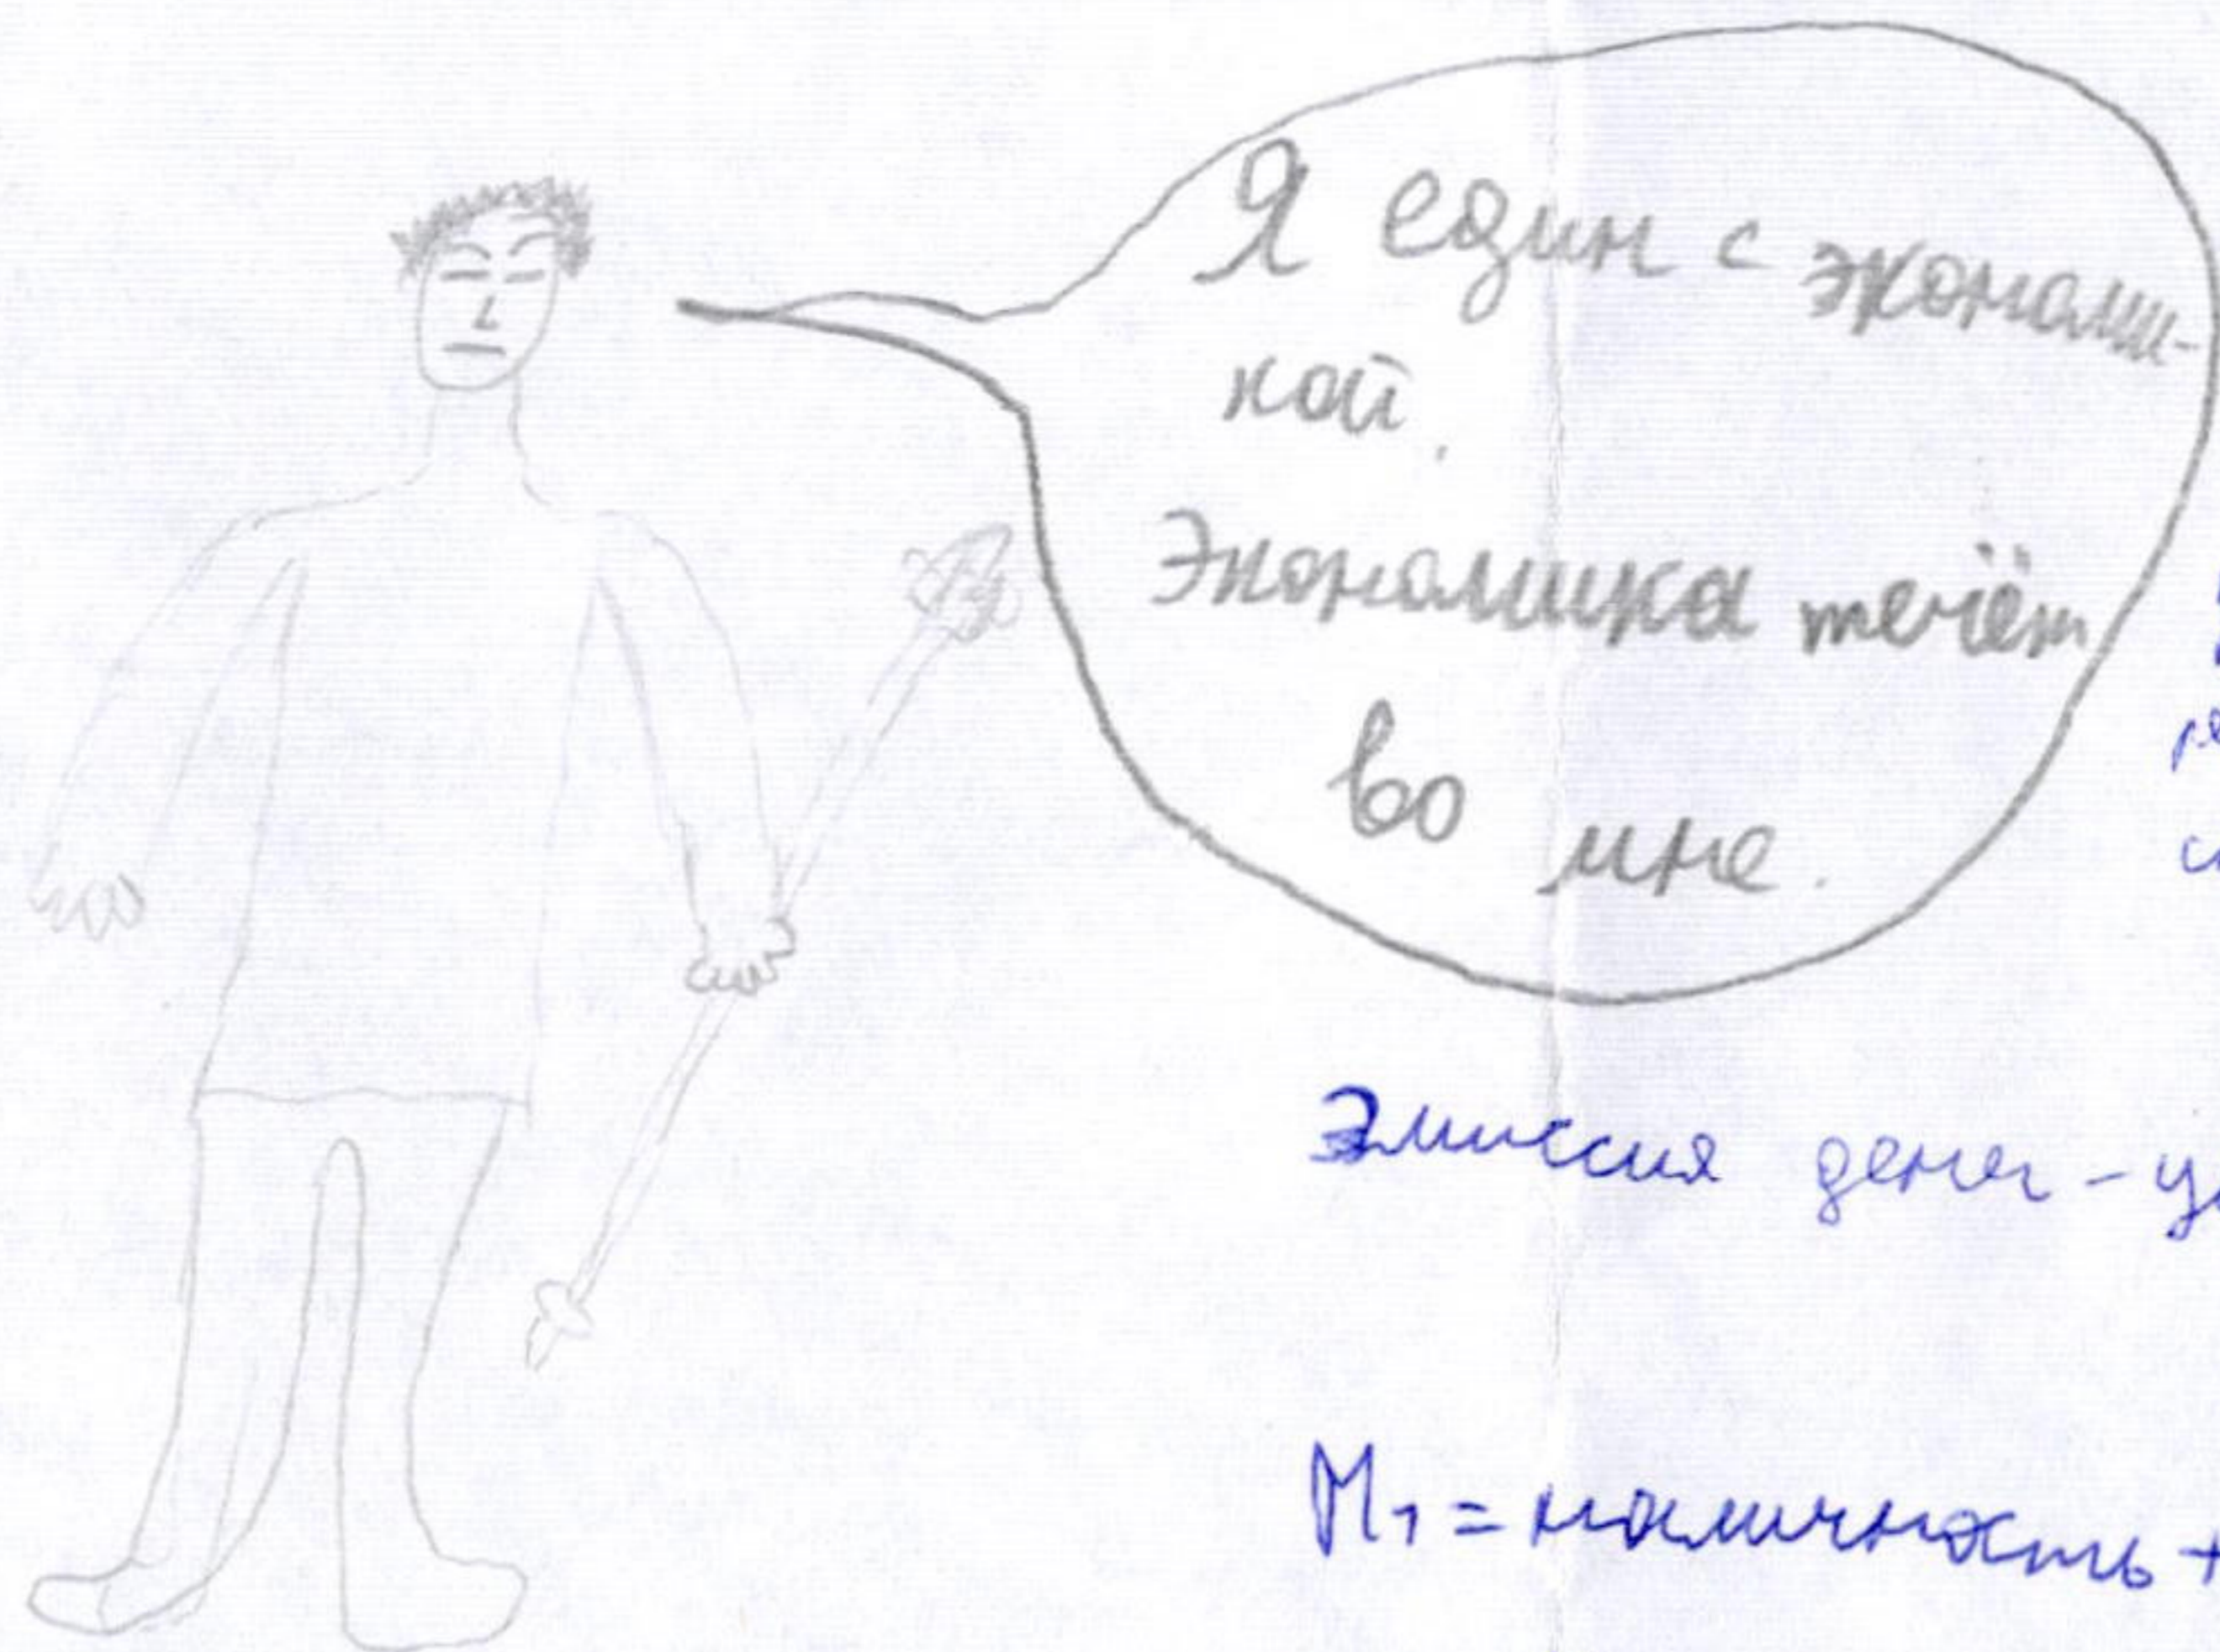 Я един с экономи-
кой.
Экономика течёт
во мне.
Эмиссия денег - у
M₁ = наличность +